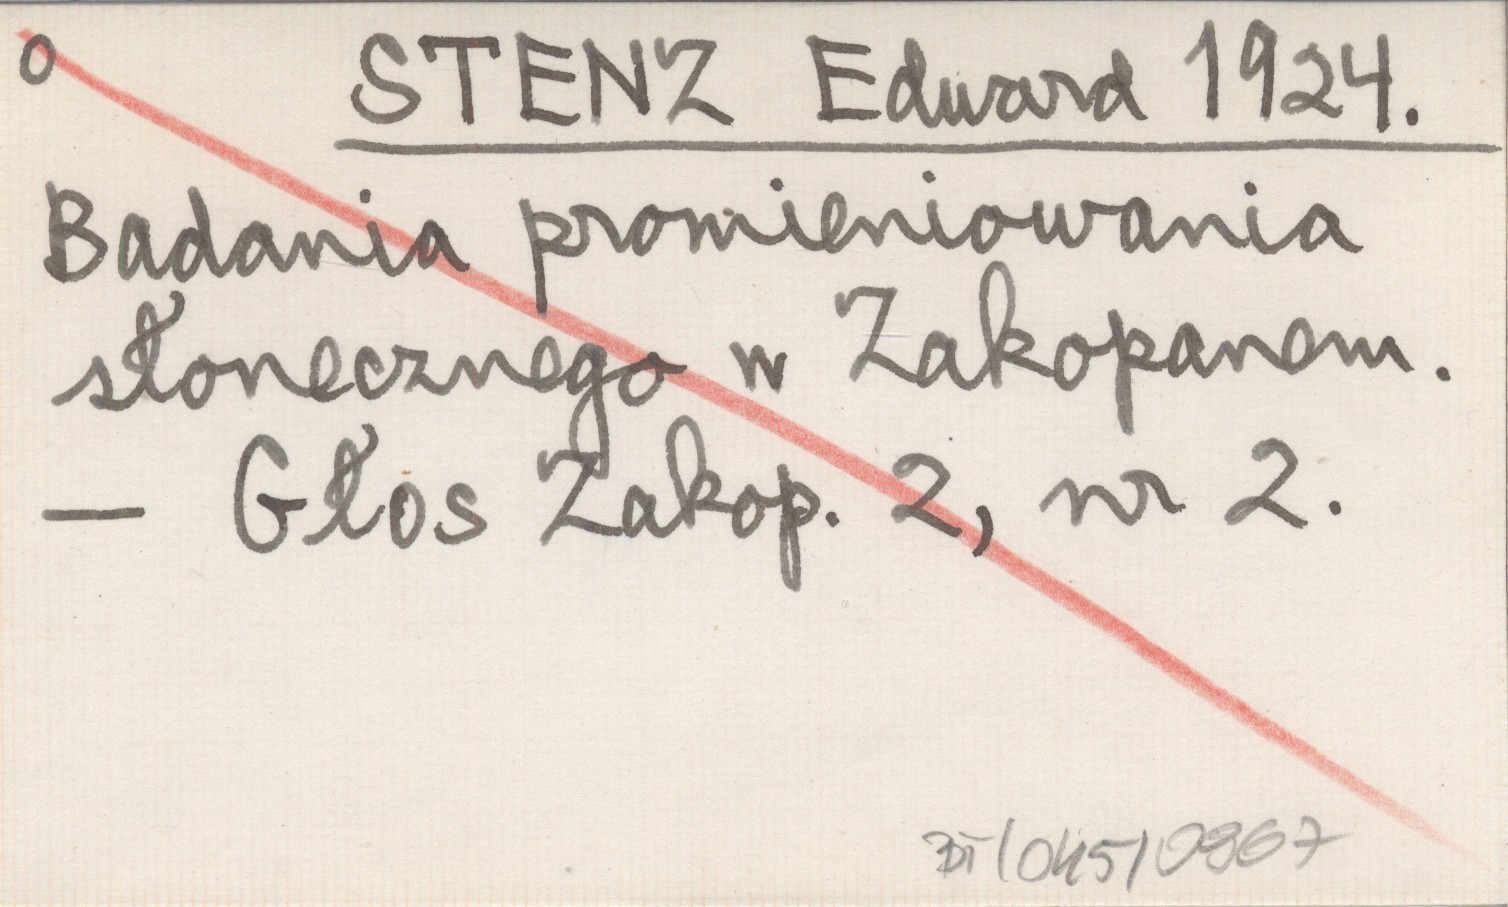 o STENZ Edward 1924.
Badania promieniowania
słonecznego w Zakopanem.
— Głos Zakop. 2, nr 2.
/045/0867